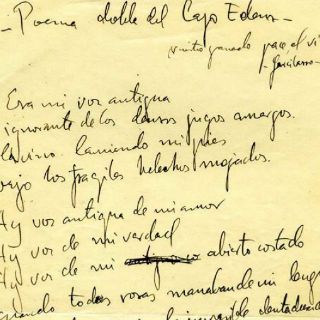 - Poema doble del Lago Edem -
nuestro ganado pace el vi
- Garcilaso -
Era mi voz antigua
ignorante de los densos jugos amargos.
lamiendo mis pies
vajo los fragiles helechos mojados.
Ay voz antigua de mi amor
Ay voz de mi verdad
Ay voz de mi abierto costado
todas rosas manaban de mi lengu
dentadura